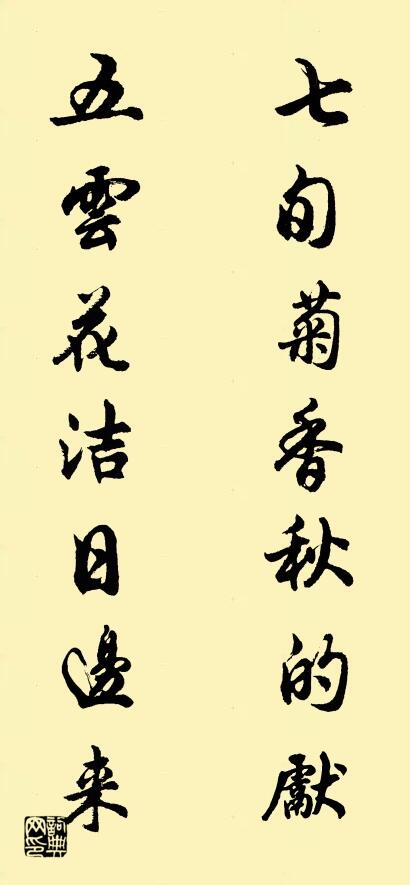 七旬菊香秋的獻
五雲花洁日邊来
詞典网印